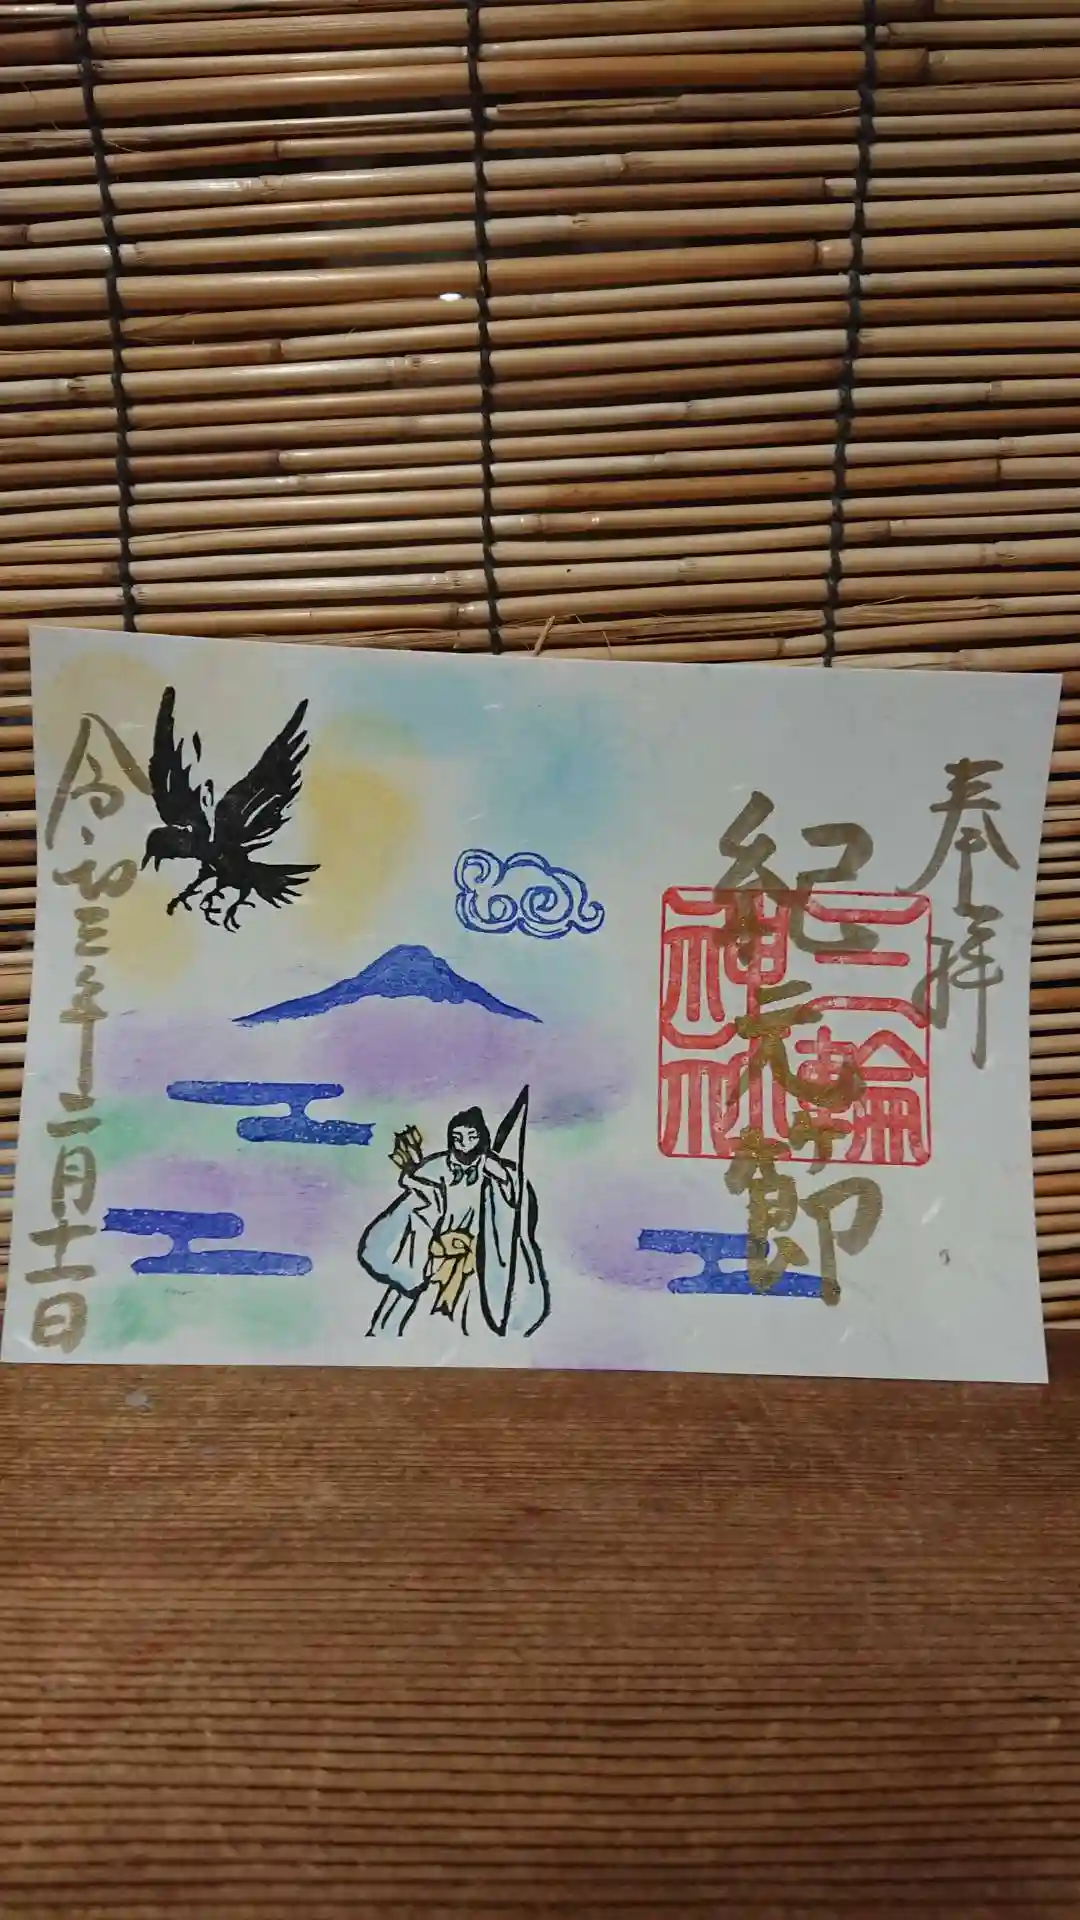 奉拝
紀元節
三輪神社
令和三年二月十一日